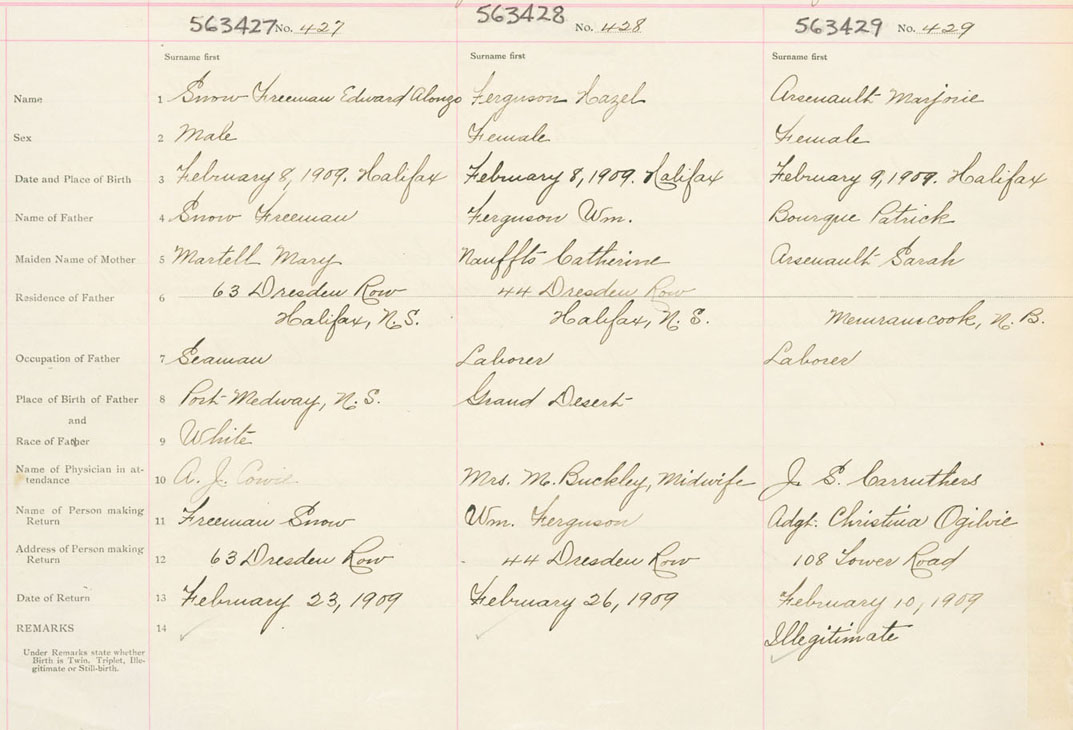 563427 No. 427 563428 No. 428 563429 No. 429
Surname first Surname first Surname first
Name 1 Snow Freeman Edward Alonzo Ferguson Hazel Arsenault Marjorie
Sex 2 Male Female Female
Date and Place of Birth 3 February 8, 1909. Halifax February 8, 1909. Halifax February 9, 1909. Halifax
Name of Father 4 Snow Freeman Ferguson Wm. Bourque Patrick
Maiden Name of Mother 5 Martell Mary Nauffts Catherine Arsenault Sarah
Residence of Father 6 63 Dresden Row 44 Dresden Row
Halifax, N.S. Halifax, N.S. Memramcook, N.B.
Occupation of Father 7 Seaman Laborer Laborer
Place of Birth of Father 8 Port Medway, N.S. Grand Desert
and
Race of Father 9 White
Name of Physician in at-
tendance 10 A. J. Cowie Mrs. M. Buckley, Midwife J. S. Carruthers
Name of Person making
Return 11 Freeman Snow Wm. Ferguson Adgt. Christina Ogilvie
Address of Person making
Return 12 63 Dresden Row 44 Dresden Row 108 Tower Road
Date of Return 13 February 23, 1909 February 26, 1909 February 10, 1909
REMARKS 14 Illegitimate
Under Remarks state whether
Birth is Twin, Triplet, Ille-
gitimate or Still-birth.